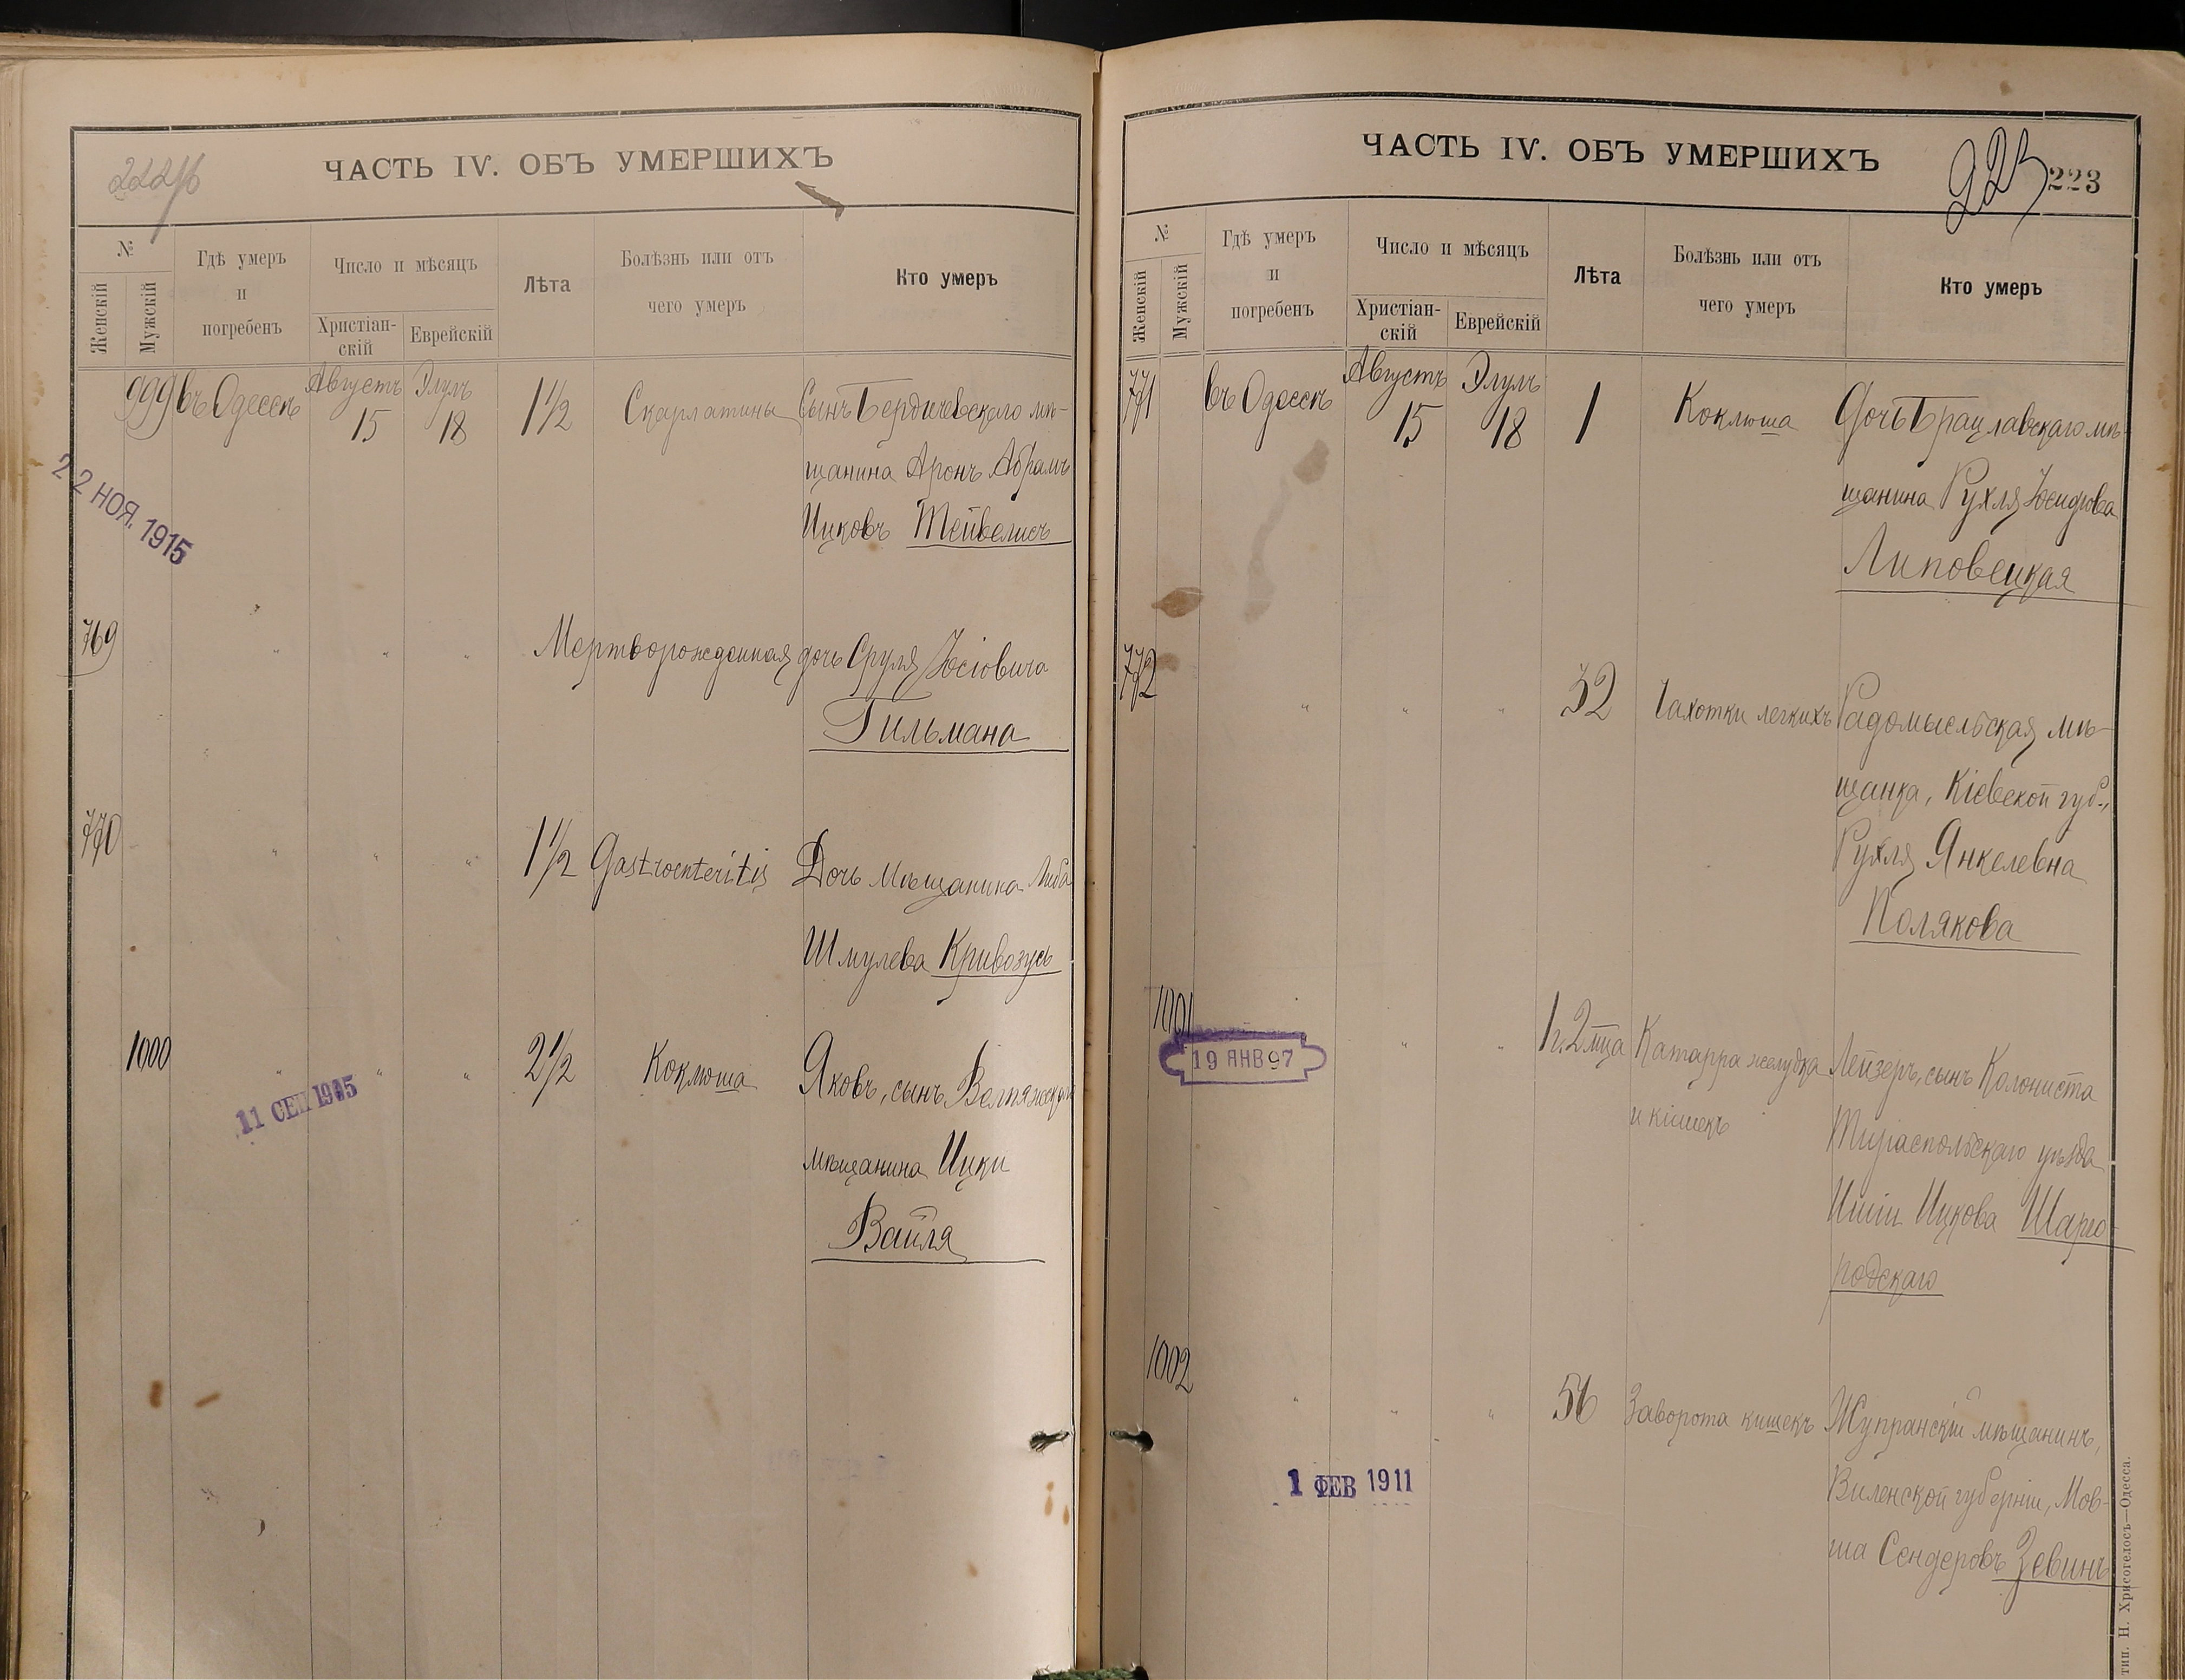 222/б
ЧАСТЬ IV. ОБЪ УМЕРШИХЪ
№
Женскій
Мужскій
Гдѣ умеръ
и
погребенъ
Число и мѣсяцъ
Христіан-
скій
Еврейскій
Лѣта
Болѣзнь или отъ
чего умеръ
Кто умеръ
999 въ Одессѣ Августъ 15 Элулъ 18 1 1/2 Скарлатины Сынъ Бердичевскаго мѣ-
щанина Аронъ Абрамъ
Ицковъ Тейвелисъ
22 НОЯ. 1915
769 " " " Мертворожденная дочь Сруля Іосіовича
Гильмана
770 " " " 1 1/2 Gastroenteritis Дочь мѣщанина Либа
Шмулева Кривозусь
1000 " " " 2 1/2 Коклюша Яковъ, сынъ
мѣщанина Ицки
Вайля
11 СЕН 1915
ЧАСТЬ IV. ОБЪ УМЕРШИХЪ
223
223
№
Женскій
Мужскій
Гдѣ умеръ
и
погребенъ
Число и мѣсяцъ
Христіан-
скій
Еврейскій
Лѣта
Болѣзнь или отъ
чего умеръ
Кто умеръ
771 въ Одессѣ Августъ 15 Элулъ 18 1 Коклюша Дочь Брацлавскаго мѣ-
щанина Рухля
Липовецкая
772 " " " 32 Чахотки легкихъ Радомысльская мѣ-
щанка, Кіевской губ.,
Рухля Янкелевна
Полякова
1001 " " 1 г. 2 мца Катарра желудка Лейзеръ, сынъ Колониста
и кишекъ Тираспольскаго уѣзда
Ицкова Шарго-
родскаго
19 ЯНВ 97
1002 " " " 56 Заворота кишекъ Жупранскій мѣщанинъ,
Виленской губерніи, Мов-
ша Сендеровъ Зевинъ
1 ФЕВ 1911
тип. Н. Хрисогелосъ—Одесса.